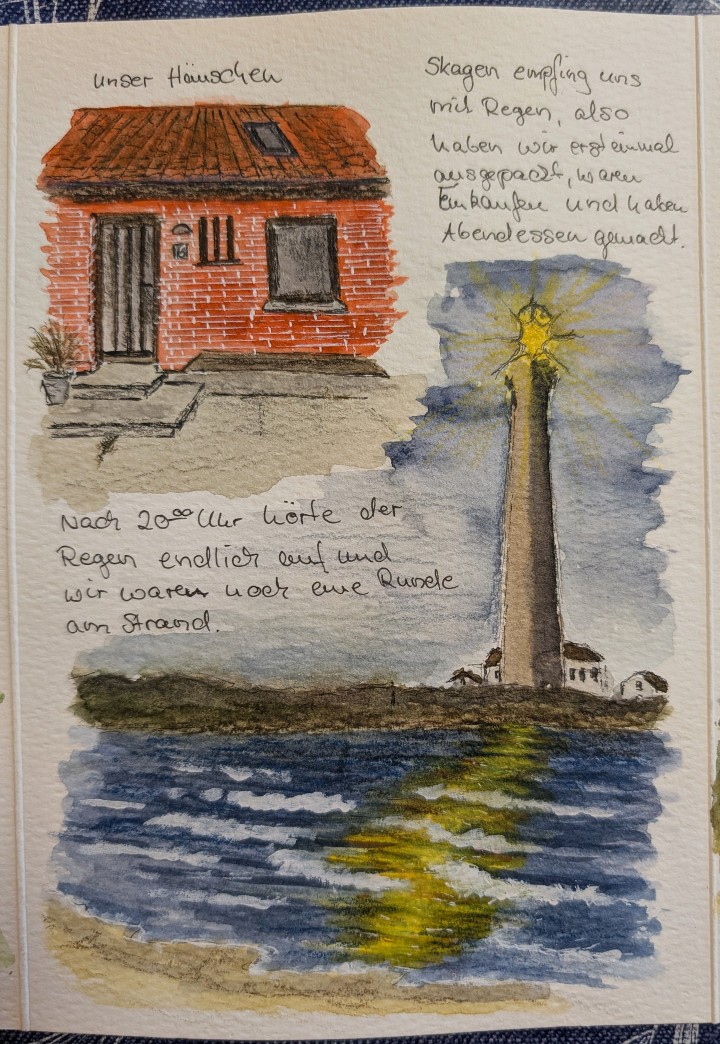 unser Häuschen
Skagen empfing uns
mit Regen, also
haben wir erst einmal
ausgepackt, waren
Einkaufen und haben
Abendessen gemacht.
Nach 20⁰⁰ Uhr hörte der
Regen endlich auf und
wir waren noch eine Runde
am Strand.